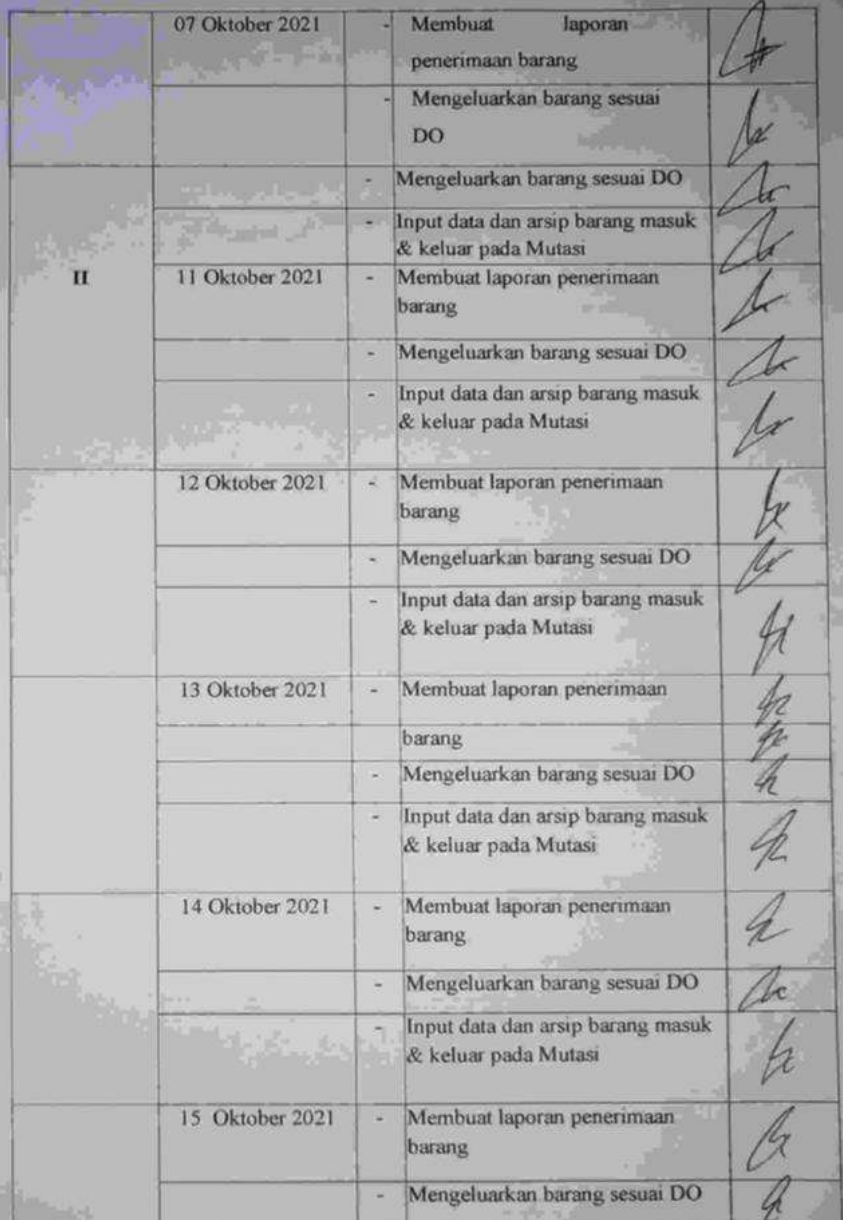 07 Oktober 2021 - Membuat laporan
penerimaan barang
- Mengeluarkan barang sesuai
DO
- Mengeluarkan barang sesuai DO
- Input data dan arsip barang masuk
& keluar pada Mutasi
II 11 Oktober 2021 - Membuat laporan penerimaan
barang
- Mengeluarkan barang sesuai DO
- Input data dan arsip barang masuk
& keluar pada Mutasi
12 Oktober 2021 - Membuat laporan penerimaan
barang
- Mengeluarkan barang sesuai DO
- Input data dan arsip barang masuk
& keluar pada Mutasi
13 Oktober 2021 - Membuat laporan penerimaan
barang
- Mengeluarkan barang sesuai DO
- Input data dan arsip barang masuk
& keluar pada Mutasi
14 Oktober 2021 - Membuat laporan penerimaan
barang
- Mengeluarkan barang sesuai DO
- Input data dan arsip barang masuk
& keluar pada Mutasi
15 Oktober 2021 - Membuat laporan penerimaan
barang
- Mengeluarkan barang sesuai DO